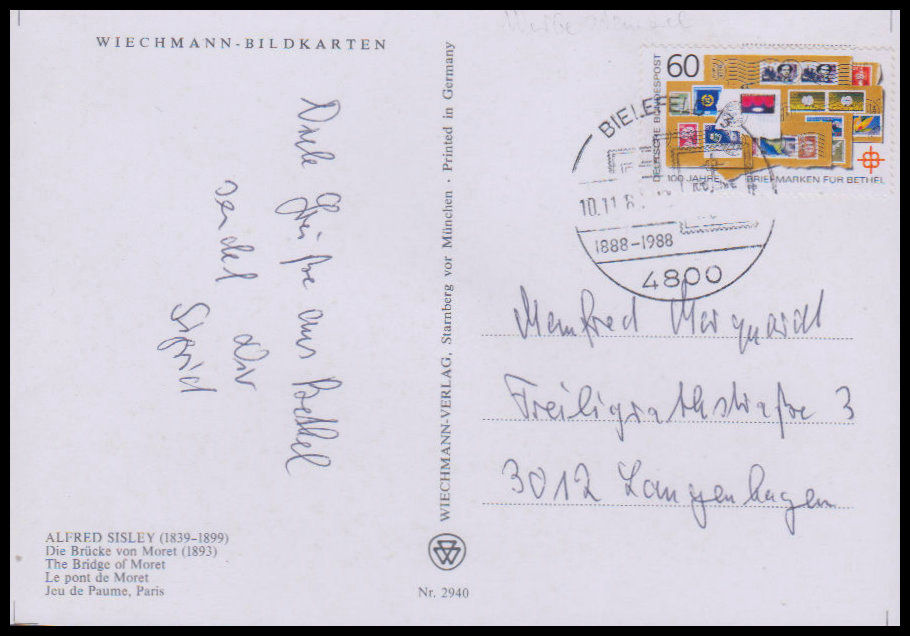 WIECHMANN-BILDKARTEN
Viele Grüße aus Bethel
sendet Dir
Sigrid
ALFRED SISLEY (1839–1899)
Die Brücke von Moret (1893)
The Bridge of Moret
Le pont de Moret
Jeu de Paume, Paris
WIECHMANN-VERLAG, Starnberg vor München · Printed in Germany
Nr. 2940
60
DEUTSCHE BUNDESPOST
100 JAHRE BRIEFMARKEN FÜR BETHEL
BIELEFELD
10.11.8
1888–1988
4800
Manfred Marquardt
Freiligrathstraße 3
3012 Langenhagen